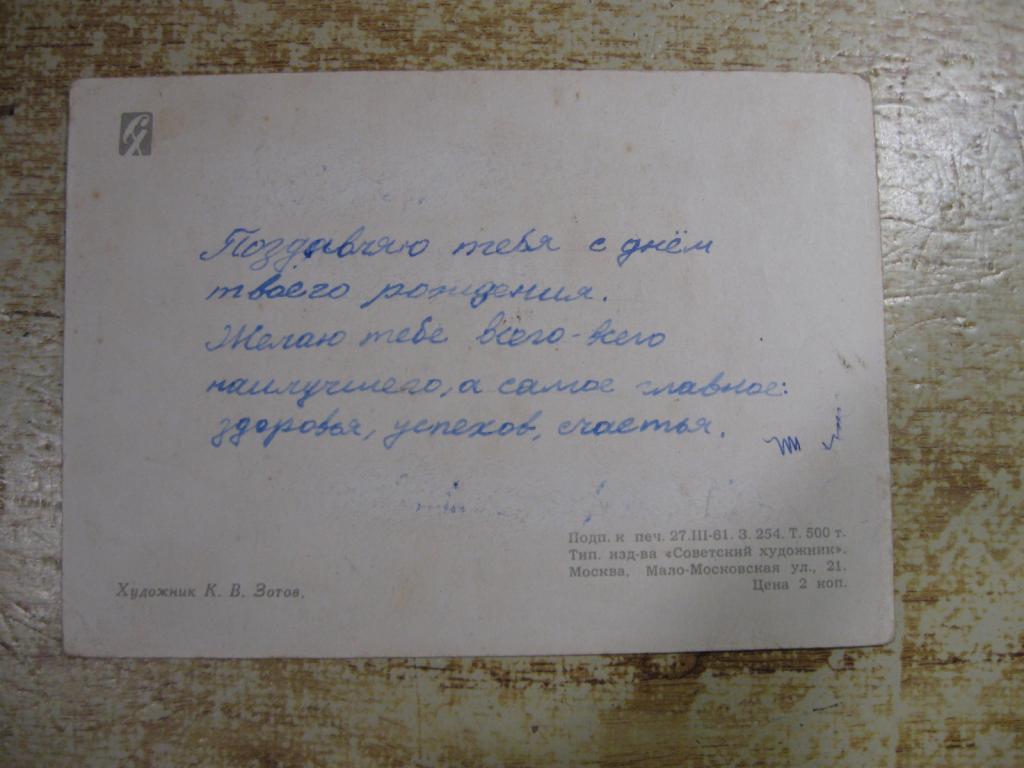 Поздавляю тебя с днём
твоего рождения.
Желаю тебе всего-всего
наилучшего, а самое главное:
здоровья, успехов, счастья.
Подп. к печ. 27.III-61. З. 254. Т. 500 т.
Тип. изд-ва «Советский художник».
Москва, Мало-Московская ул., 21.
Цена 2 коп.
Художник К. В. Зотов.